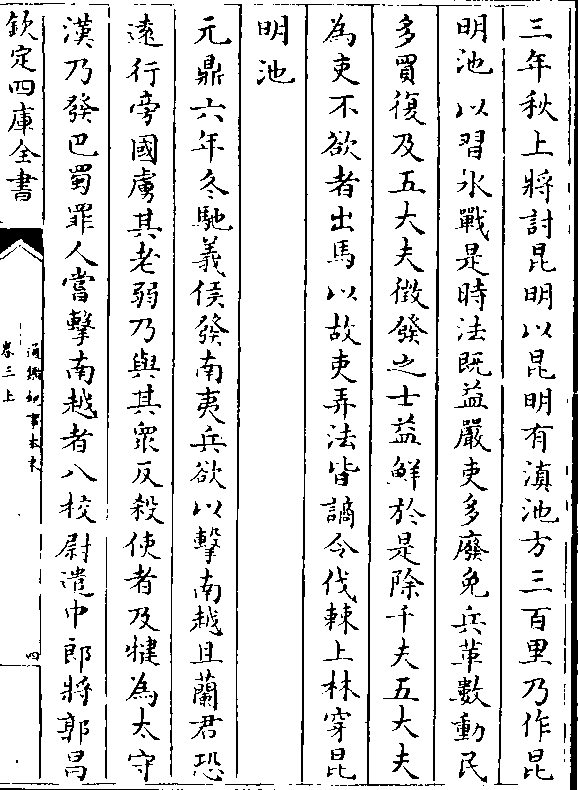 三年秋上將討昆明以昆明有滇池方三百里乃作昆
明池以習水戰是時法既益嚴吏多廢免兵革數動民
多買復及五大夫徵發之士益鮮於是除千夫五大夫
為吏不欲者出馬以故吏弄法皆謫令伐棘上林穿昆
明池
元鼎六年冬馳義侯發南夷兵欲以擊南越且蘭君恐
遠行旁國虜其老弱乃與其衆反殺使者及犍為太守
漢乃發巴蜀罪人當擊南越者八校尉遣中郎將郭昌
欽定四庫全書
通鑑紀事本末
卷三上
四